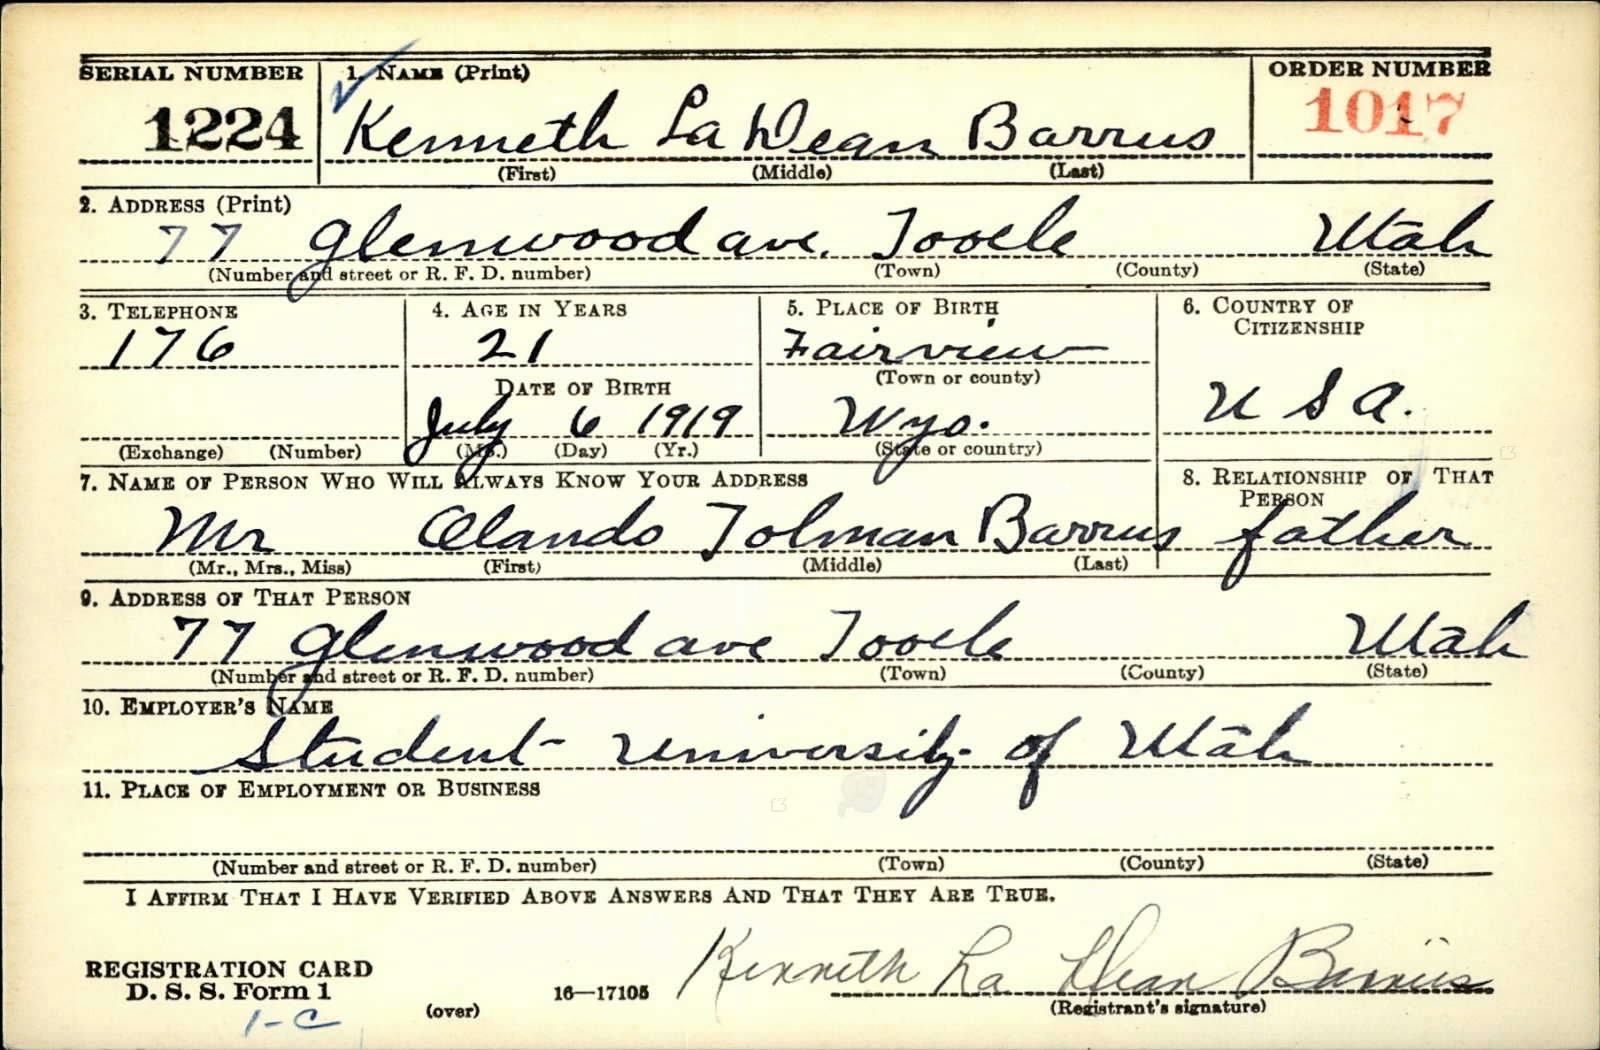 SERIAL NUMBER 1. NAME (Print) ORDER NUMBER
1224 Kenneth La Dean Barrus 1017
(First) (Middle) (Last)
2. ADDRESS (Print)
77 Glenwood ave. Tooele Utah
(Number and street or R. F. D. number) (Town) (County) (State)
3. TELEPHONE 4. AGE IN YEARS 5. PLACE OF BIRTH 6. COUNTRY OF CITIZENSHIP
176 21 Fairview
(Town or county)
DATE OF BIRTH
July 6 1919 Wyo. U S A.
(Exchange) (Number) (Mo.) (Day) (Yr.) (State or country)
7. NAME OF PERSON WHO WILL ALWAYS KNOW YOUR ADDRESS 8. RELATIONSHIP OF THAT PERSON
Mr Olando Tolman Barrus father
(Mr., Mrs., Miss) (First) (Middle) (Last)
9. ADDRESS OF THAT PERSON
77 Glenwood ave Tooele Utah
(Number and street or R. F. D. number) (Town) (County) (State)
10. EMPLOYER'S NAME
Student - University of Utah
11. PLACE OF EMPLOYMENT OR BUSINESS
(Number and street or R. F. D. number) (Town) (County) (State)
I AFFIRM THAT I HAVE VERIFIED ABOVE ANSWERS AND THAT THEY ARE TRUE.
Kenneth La Dean Barrus
REGISTRATION CARD
D. S. S. Form 1 (over) 16—17105 (Registrant's signature)
1-C